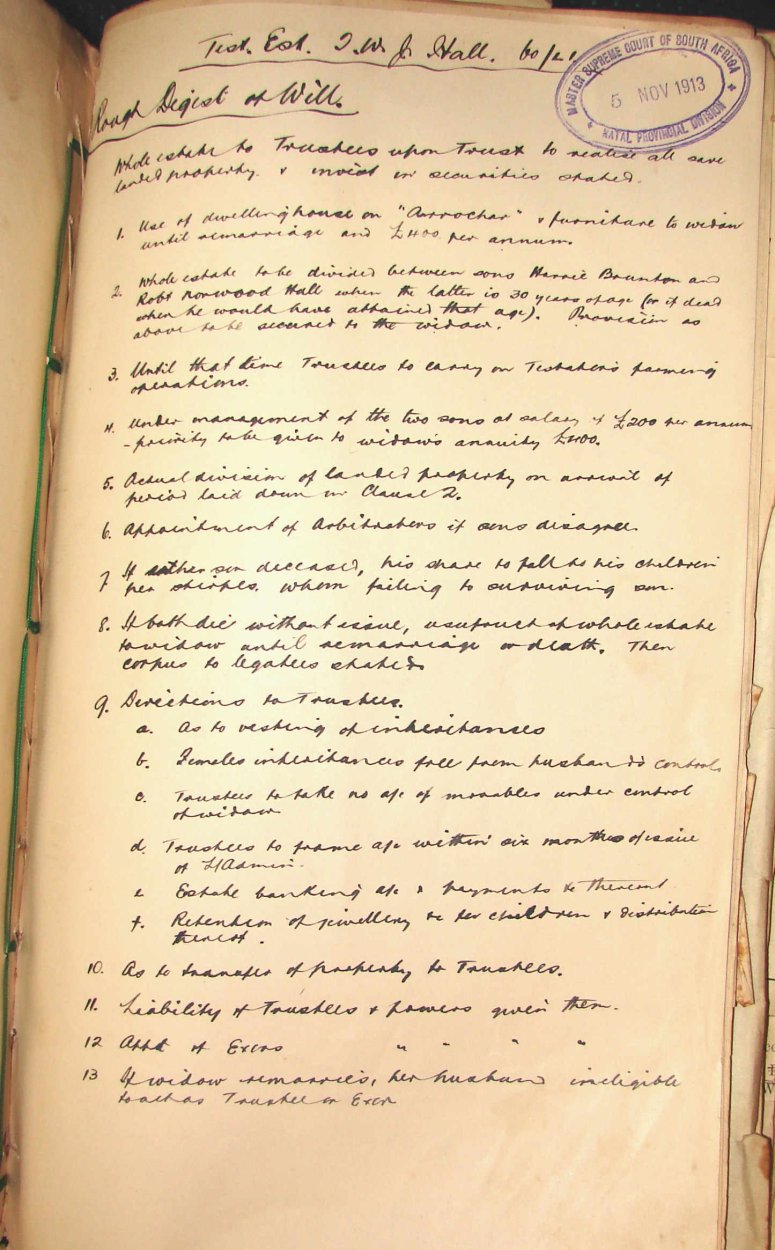 Test. Est. J. W. J. Hall. 60/21
MASTER SUPREME COURT OF SOUTH AFRICA
5 NOV 1913
NATAL PROVINCIAL DIVISION
Rough Digest of Will.
Whole estate to Trustees upon Trust to realise all save
landed property. & invest in securities stated.
1. Use of dwelling house on "Arrochar" & furniture to widow
until remarriage and £400 per annum.
2. Whole estate to be divided between sons Harrie Brunton and
Robt Norwood Hall when the latter is 30 years of age (or if dead
when he would have attained that age). Provision as
above to be secured to the widow.
3. Until that time Trustees to carry on Testator's farming
operations.
4. Under management of the two sons at salary of £200 per annum
- priority to be given to widow's annuity £400.
5. Actual division of landed property on arrival of
period laid down in Clause 2.
6. Appointment of Arbitrators if sons disagree.
7 If either son deceased, his share to fall to his children
per stirpes. whom failing to surviving son.
8. If both die without issue, usufruct of whole estate
to widow until remarriage or death. Then
corpus to legatees stated.
9. Directions to Trustees.
a. As to vesting of inheritances
b. Females inheritances free from husband's control.
c. Trustees to take no a/c of movables under control
of widow
d. Trustees to frame a/c within six months of issue
of L/Admin.
e Estate banking a/c & payments &c thereout
f. Retention of jewellery &c for children & distribution
thereof.
10. As to transfer of property to Trustees.
11. Liability of Trustees & powers given them.
12 Appt of Exors " " " "
13 If widow remarries, her husband ineligible
to act as Trustee or Exor